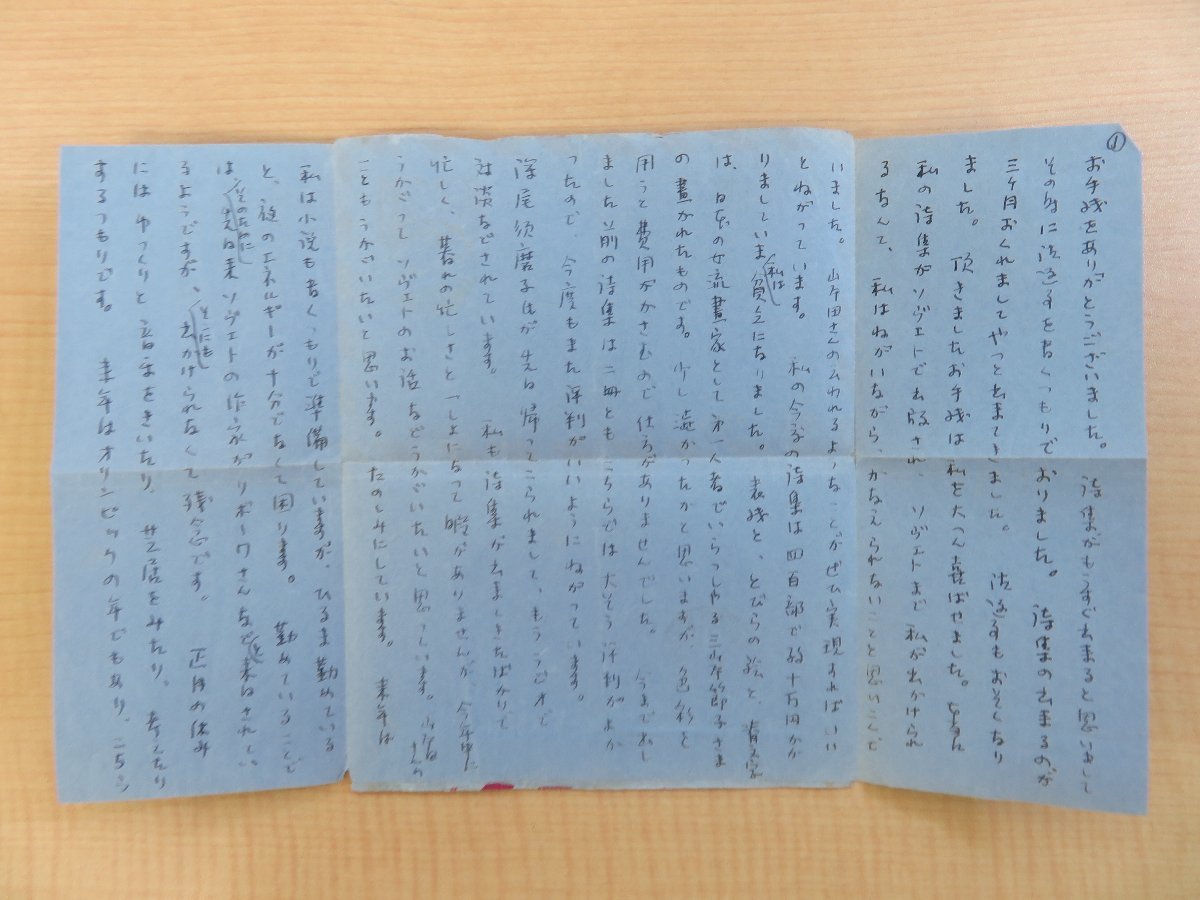 ①
お手紙をありがとうございました。 詩集がもうすぐ出まると思いまして
その時に御返事を書くつもりでおりました。 詩集の出まるのが
三ヶ月おくれましてやっと出まてきました。 御返事もおそくなり
ました。 頂きましたお手紙は私を大へん喜ばせました。
私の詩集がソヴェトで出版され、ソヴェトまで私が出かけられ
るなんて、 私はねがいながら、かなえられないことと思いこんで
いました。 山本田さんの云われるようなことがぜひ実現すればいい
とねがっています。 私の今度の詩集は四百部で数十万円かか
りましていま私は貧乏になりました。 表紙と、とびらの絵と、
は、日本の女流畫家として第一人者でいらっしゃる三岸節子さま
の畫かれたものです。 少し遠かったかと思いますが、色彩を
用うと費用がかさむので仕方がありませんでした。 今まで出し
ました前の詩集は二冊ともこちらでは大そう評判がよか
ったので、今度もまた評判がいいようにねがっています。
深尾須磨子氏が先日帰ってこられまして、もうラジオで
対談などされています。 私も詩集が出ましたばかりで
忙しく、暮れの忙しさと一しょになって暇がありませんが、今年中に
うかがって ソヴェトのお話などうかがいたいと思っています。
こともうかがいたいと思います。 たのしみにしています。 来年は
私は小説も書くつもりで準備していますが、ひるま勤めている
と、夜のエネルギーが十分でなくて困ります。 勤めていることで
は、そのために先日来ソヴェトの作家がリポーワさんなど来日されてい
るようですが、そこにも出かけられなくて残念です。 正月の休み
にはゆっくりと音楽をきいたり、芝居をみたり、考えたり
するつもりです。 来年はオリンピックの年でもあり、こちら